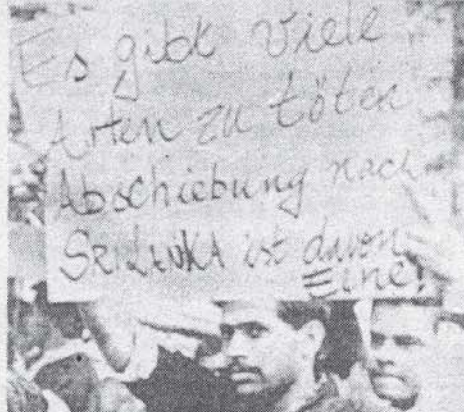 Es gibt viele
Arten zu töten
Abschiebung nach
SRILANKA ist davon
Eine!